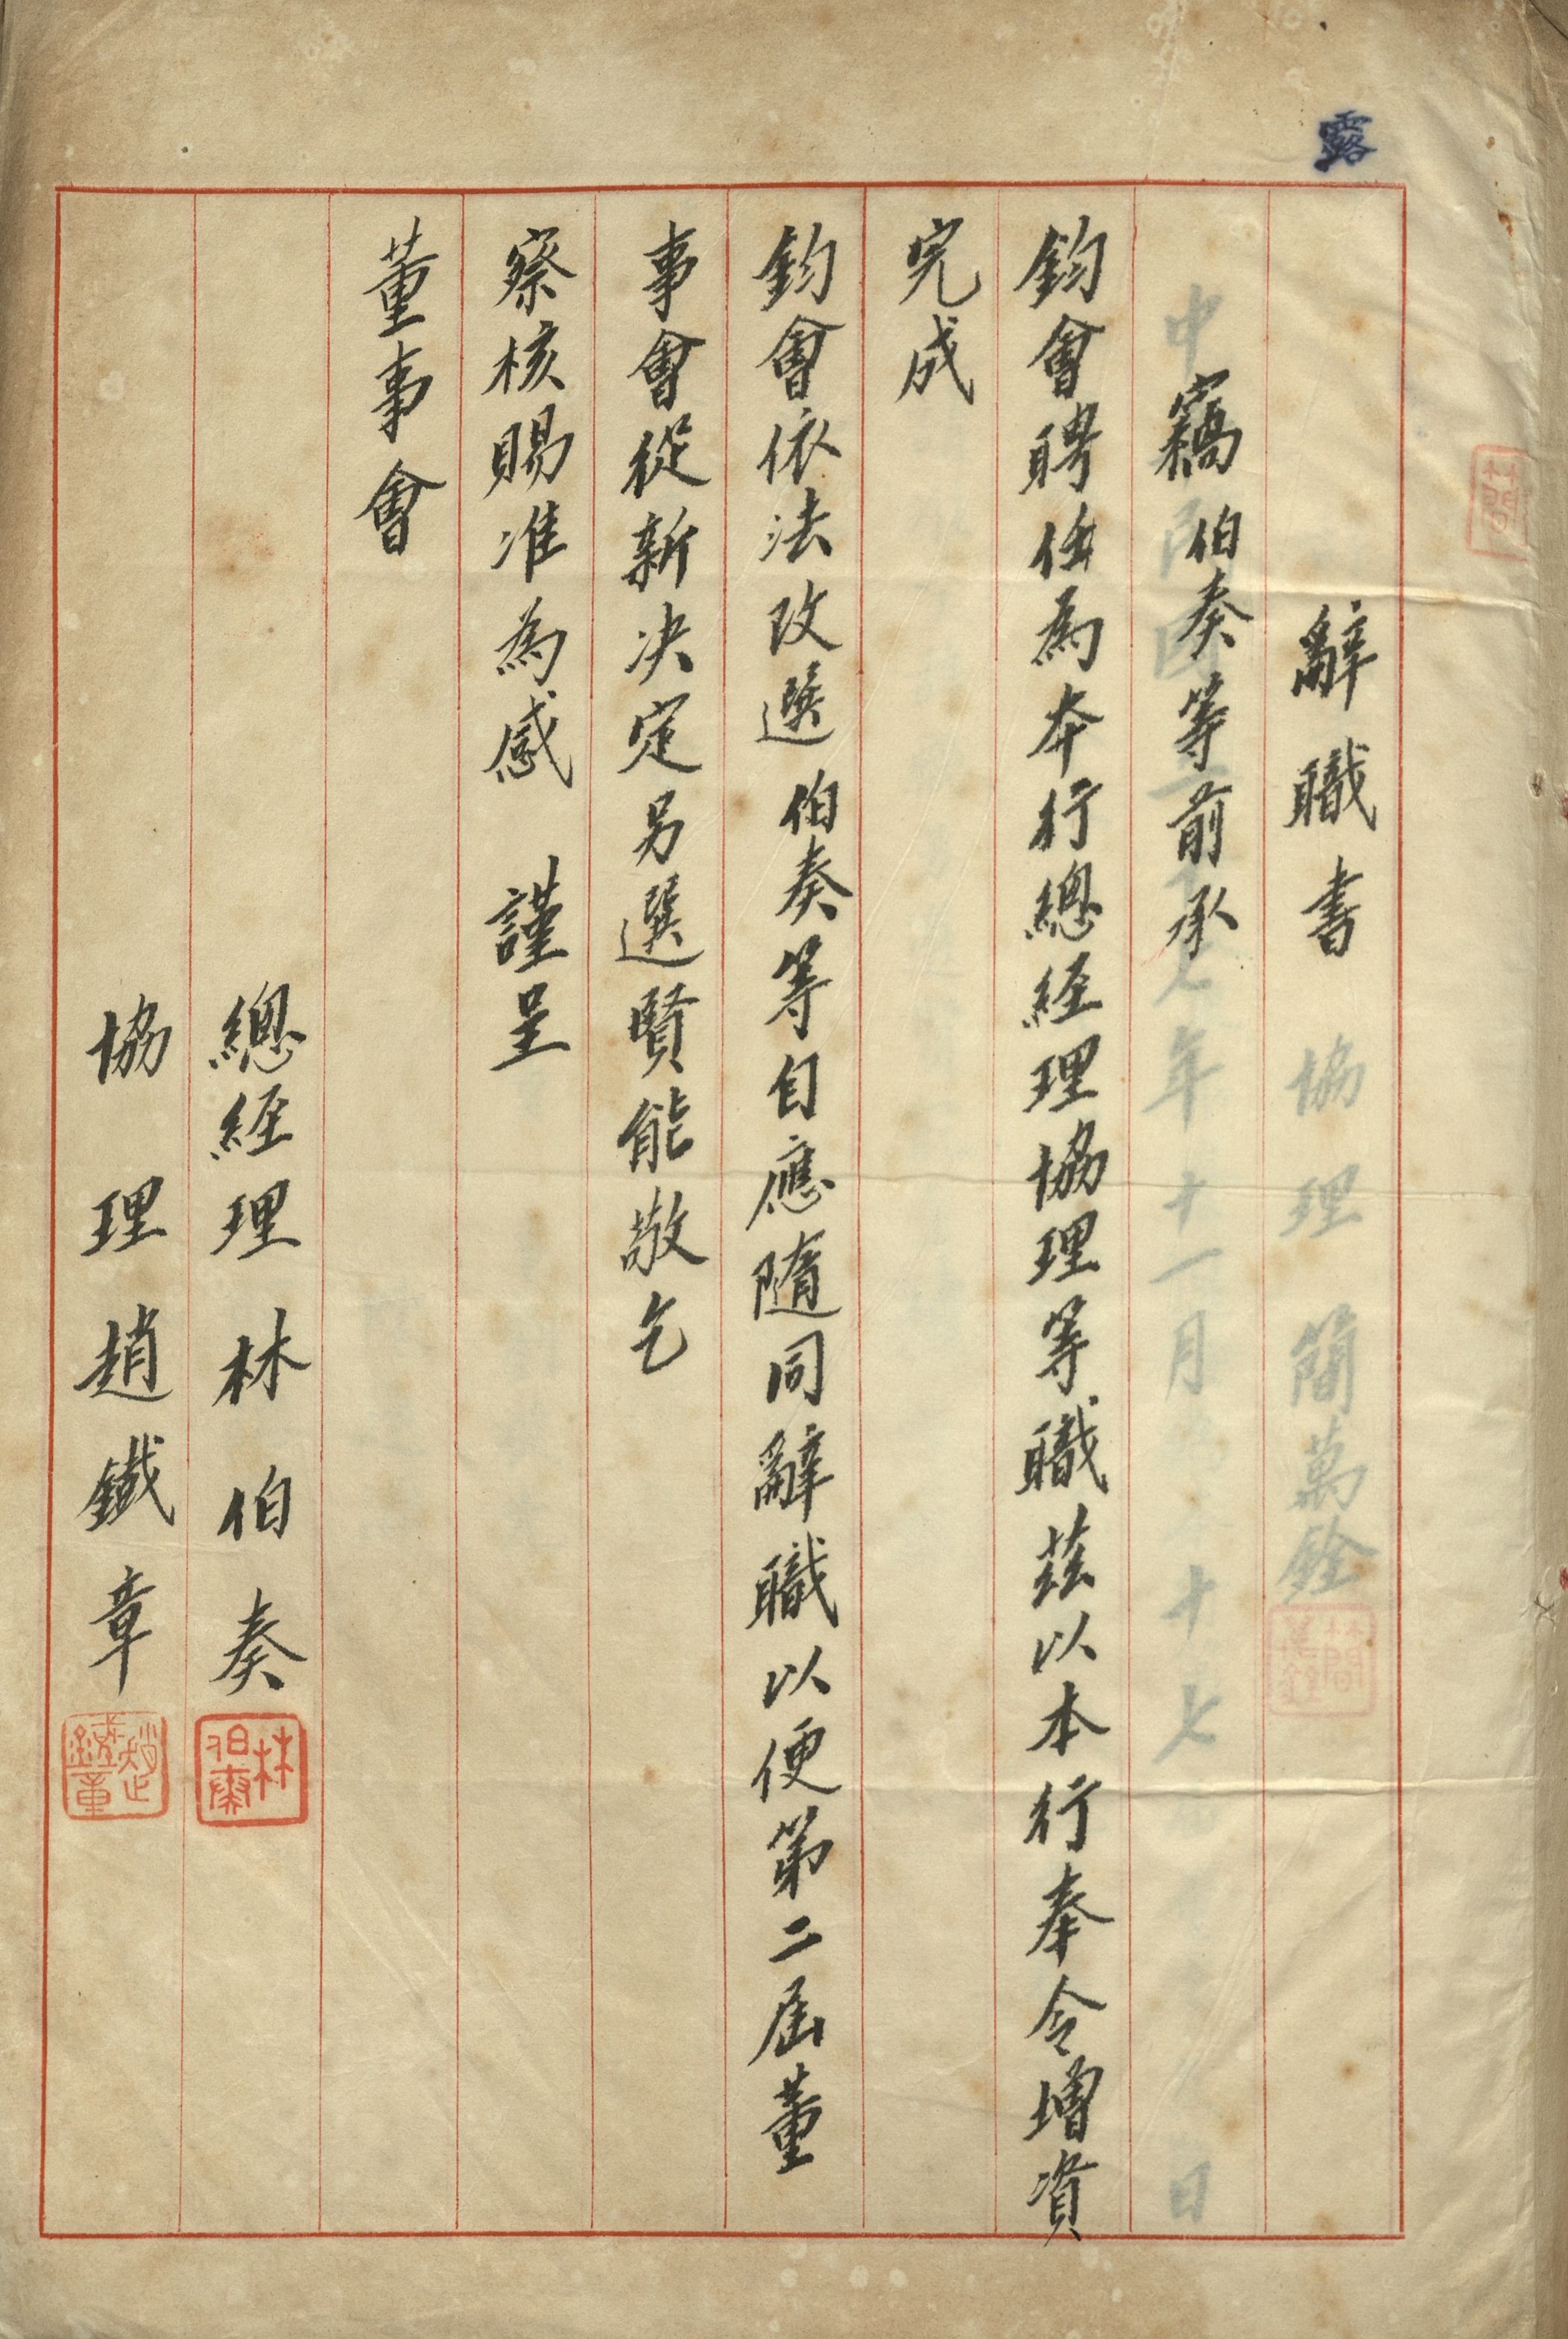 露
辭職書
竊伯奏等前承
鈞會聘任為本行總經理協理等職茲以本行奉令增資
完成
鈞會依法改選伯奏等自應隨同辭職以便第二屆董
事會從新決定另選賢能敬乞
察核賜准為感 謹呈
董事會
總經理 林伯奏
林伯奏
協理 趙鐵章
趙鐵章
協理 簡萬銓
中 民國三十七年十一月 十七 日